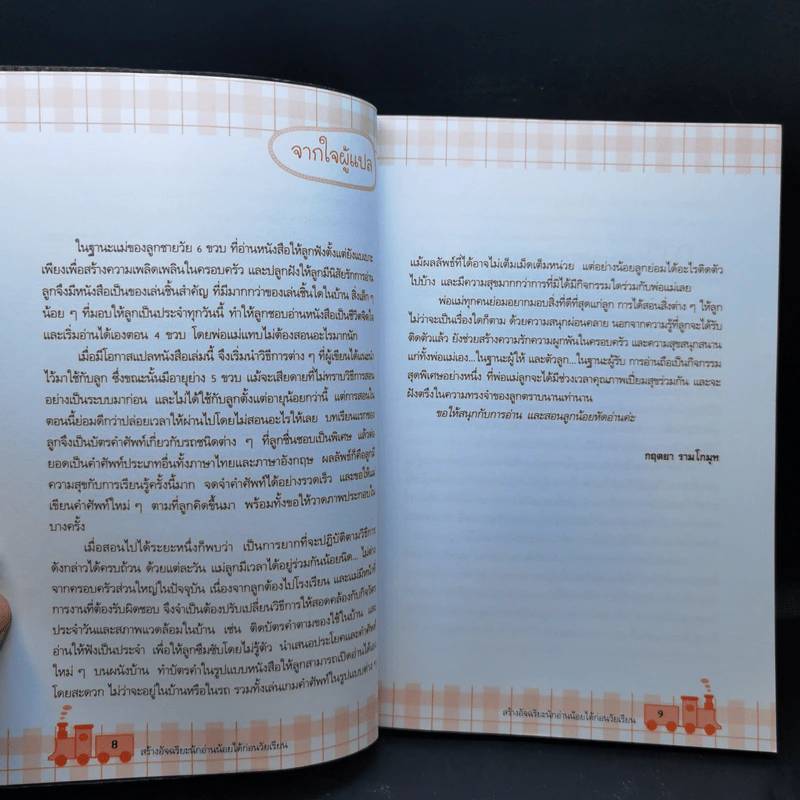 จากใจผู้แปล
ในฐานะแม่ของลูกชายวัย 6 ขวบ ที่อ่านหนังสือให้ลูกฟังตั้งแต่ยังแบเบาะ
เพียงเพื่อสร้างความเพลิดเพลินในครอบครัว และปลูกฝังให้ลูกมีนิสัยรักการอ่าน
ลูกจึงมีหนังสือเป็นของเล่นชิ้นสำคัญ ที่มีมากกว่าของเล่นชิ้นใดในบ้าน สิ่งเล็ก ๆ
น้อย ๆ ที่มอบให้ลูกเป็นประจำทุกวันนี้ ทำให้ลูกชอบอ่านหนังสือเป็นชีวิตจิตใจ
และเริ่มอ่านได้เองตอน 4 ขวบ โดยพ่อแม่แทบไม่ต้องสอนอะไรมากนัก
เมื่อมีโอกาสแปลหนังสือเล่มนี้ จึงเริ่มนำวิธีการต่าง ๆ ที่ผู้เขียนได้แนะนำ
ไว้มาใช้กับลูก ซึ่งขณะนั้นมีอายุย่าง 5 ขวบ แม้จะเสียดายที่ไม่ทราบวิธีการสอน
อย่างเป็นระบบมาก่อน และไม่ได้ใช้กับลูกตั้งแต่อายุน้อยกว่านี้ แต่การสอนใน
ตอนนี้ย่อมดีกว่าปล่อยเวลาให้ผ่านไปโดยไม่สอนอะไรให้เลย บทเรียนแรกของ
ลูกจึงเป็นบัตรคำศัพท์เกี่ยวกับรถชนิดต่าง ๆ ที่ลูกชื่นชอบเป็นพิเศษ แล้วต่อ
ยอดเป็นคำศัพท์ประเภทอื่นทั้งภาษาไทยและภาษาอังกฤษ ผลลัพธ์ก็คือลูกมี
ความสุขกับการเรียนรู้ครั้งนี้มาก จดจำคำศัพท์ได้อย่างรวดเร็ว และขอให้แม่
เขียนคำศัพท์ใหม่ ๆ ตามที่ลูกคิดขึ้นมา พร้อมทั้งขอให้วาดภาพประกอบใน
บางครั้ง
เมื่อสอนไปได้ระยะหนึ่งก็พบว่า เป็นการยากที่จะปฏิบัติตามวิธีการ
ดังกล่าวได้ครบถ้วน ด้วยแต่ละวัน แม่ลูกมีเวลาได้อยู่ร่วมกันน้อยนิด... ไม่ต่าง
จากครอบครัวส่วนใหญ่ในปัจจุบัน เนื่องจากลูกต้องไปโรงเรียน และแม่มีหน้าที่
การงานที่ต้องรับผิดชอบ จึงจำเป็นต้องปรับเปลี่ยนวิธีการให้สอดคล้องกับกิจวัตร
ประจำวันและสภาพแวดล้อมในบ้าน เช่น ติดบัตรคำตามของใช้ในบ้าน และ
อ่านให้ฟังเป็นประจำ เพื่อให้ลูกซึมซับโดยไม่รู้ตัว นำเสนอประโยคและคำศัพท์
ใหม่ ๆ บนผนังบ้าน ทำบัตรคำในรูปแบบหนังสือให้ลูกสามารถเปิดอ่านได้เอง
โดยสะดวก ไม่ว่าจะอยู่ในบ้านหรือในรถ รวมทั้งเล่นเกมคำศัพท์ในรูปแบบต่าง ๆ
8 สร้างอัจฉริยะนักอ่านน้อยได้ก่อนวัยเรียน
แม้ผลลัพธ์ที่ได้อาจไม่เต็มเม็ดเต็มหน่วย แต่อย่างน้อยลูกย่อมได้อะไรติดตัว
ไปบ้าง และมีความสุขมากกว่าการที่มิได้มีกิจกรรมใดร่วมกับพ่อแม่เลย
พ่อแม่ทุกคนย่อมอยากมอบสิ่งที่ดีที่สุดแก่ลูก การได้สอนสิ่งต่าง ๆ ให้ลูก
ไม่ว่าจะเป็นเรื่องใดก็ตาม ด้วยความสนุกผ่อนคลาย นอกจากความรู้ที่ลูกจะได้รับ
ติดตัวแล้ว ยังช่วยสร้างความรักความผูกพันในครอบครัว และความสุขสนุกสนาน
แก่ทั้งพ่อแม่เอง...ในฐานะผู้ให้ และตัวลูก...ในฐานะผู้รับ การอ่านถือเป็นกิจกรรม
สุดพิเศษอย่างหนึ่ง ที่พ่อแม่ลูกจะได้มีช่วงเวลาคุณภาพเปี่ยมสุขร่วมกัน และจะ
ฝังตรึงในความทรงจำของลูกตราบนานเท่านาน
ขอให้สนุกกับการอ่าน และสอนลูกน้อยหัดอ่านค่ะ
กฤตยา รามโกมุท
สร้างอัจฉริยะนักอ่านน้อยได้ก่อนวัยเรียน 9